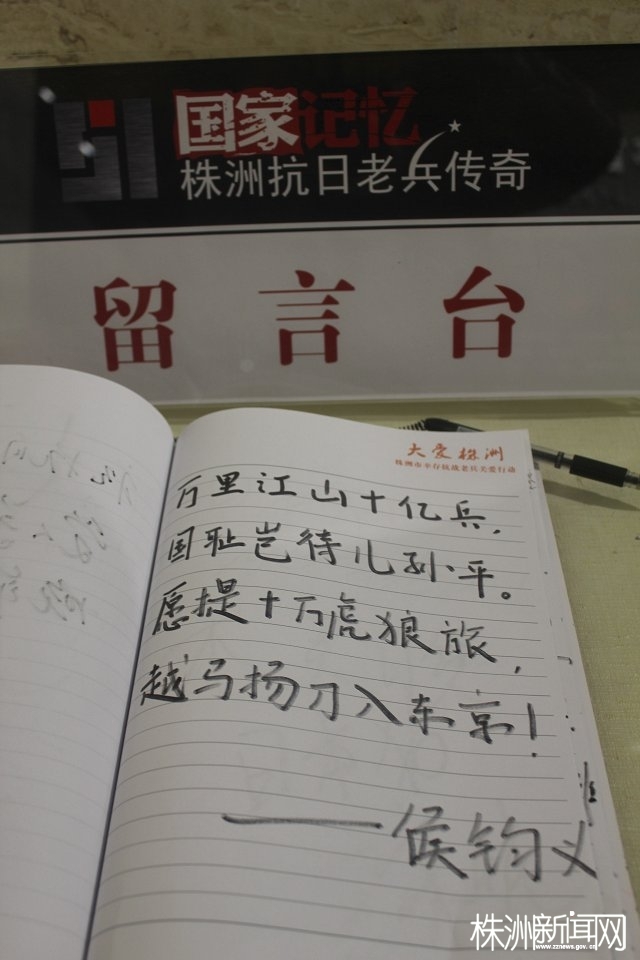 国家记忆
株洲抗日老兵传奇
留言台
大爱株洲
株洲市幸存抗战老兵关爱行动
万里江山十亿兵,
国耻岂待儿孙平。
愿提十万虎狼旅,
越马扬刀入东京!
——侯钧义
株洲新闻网
www.zznews.gov.cn